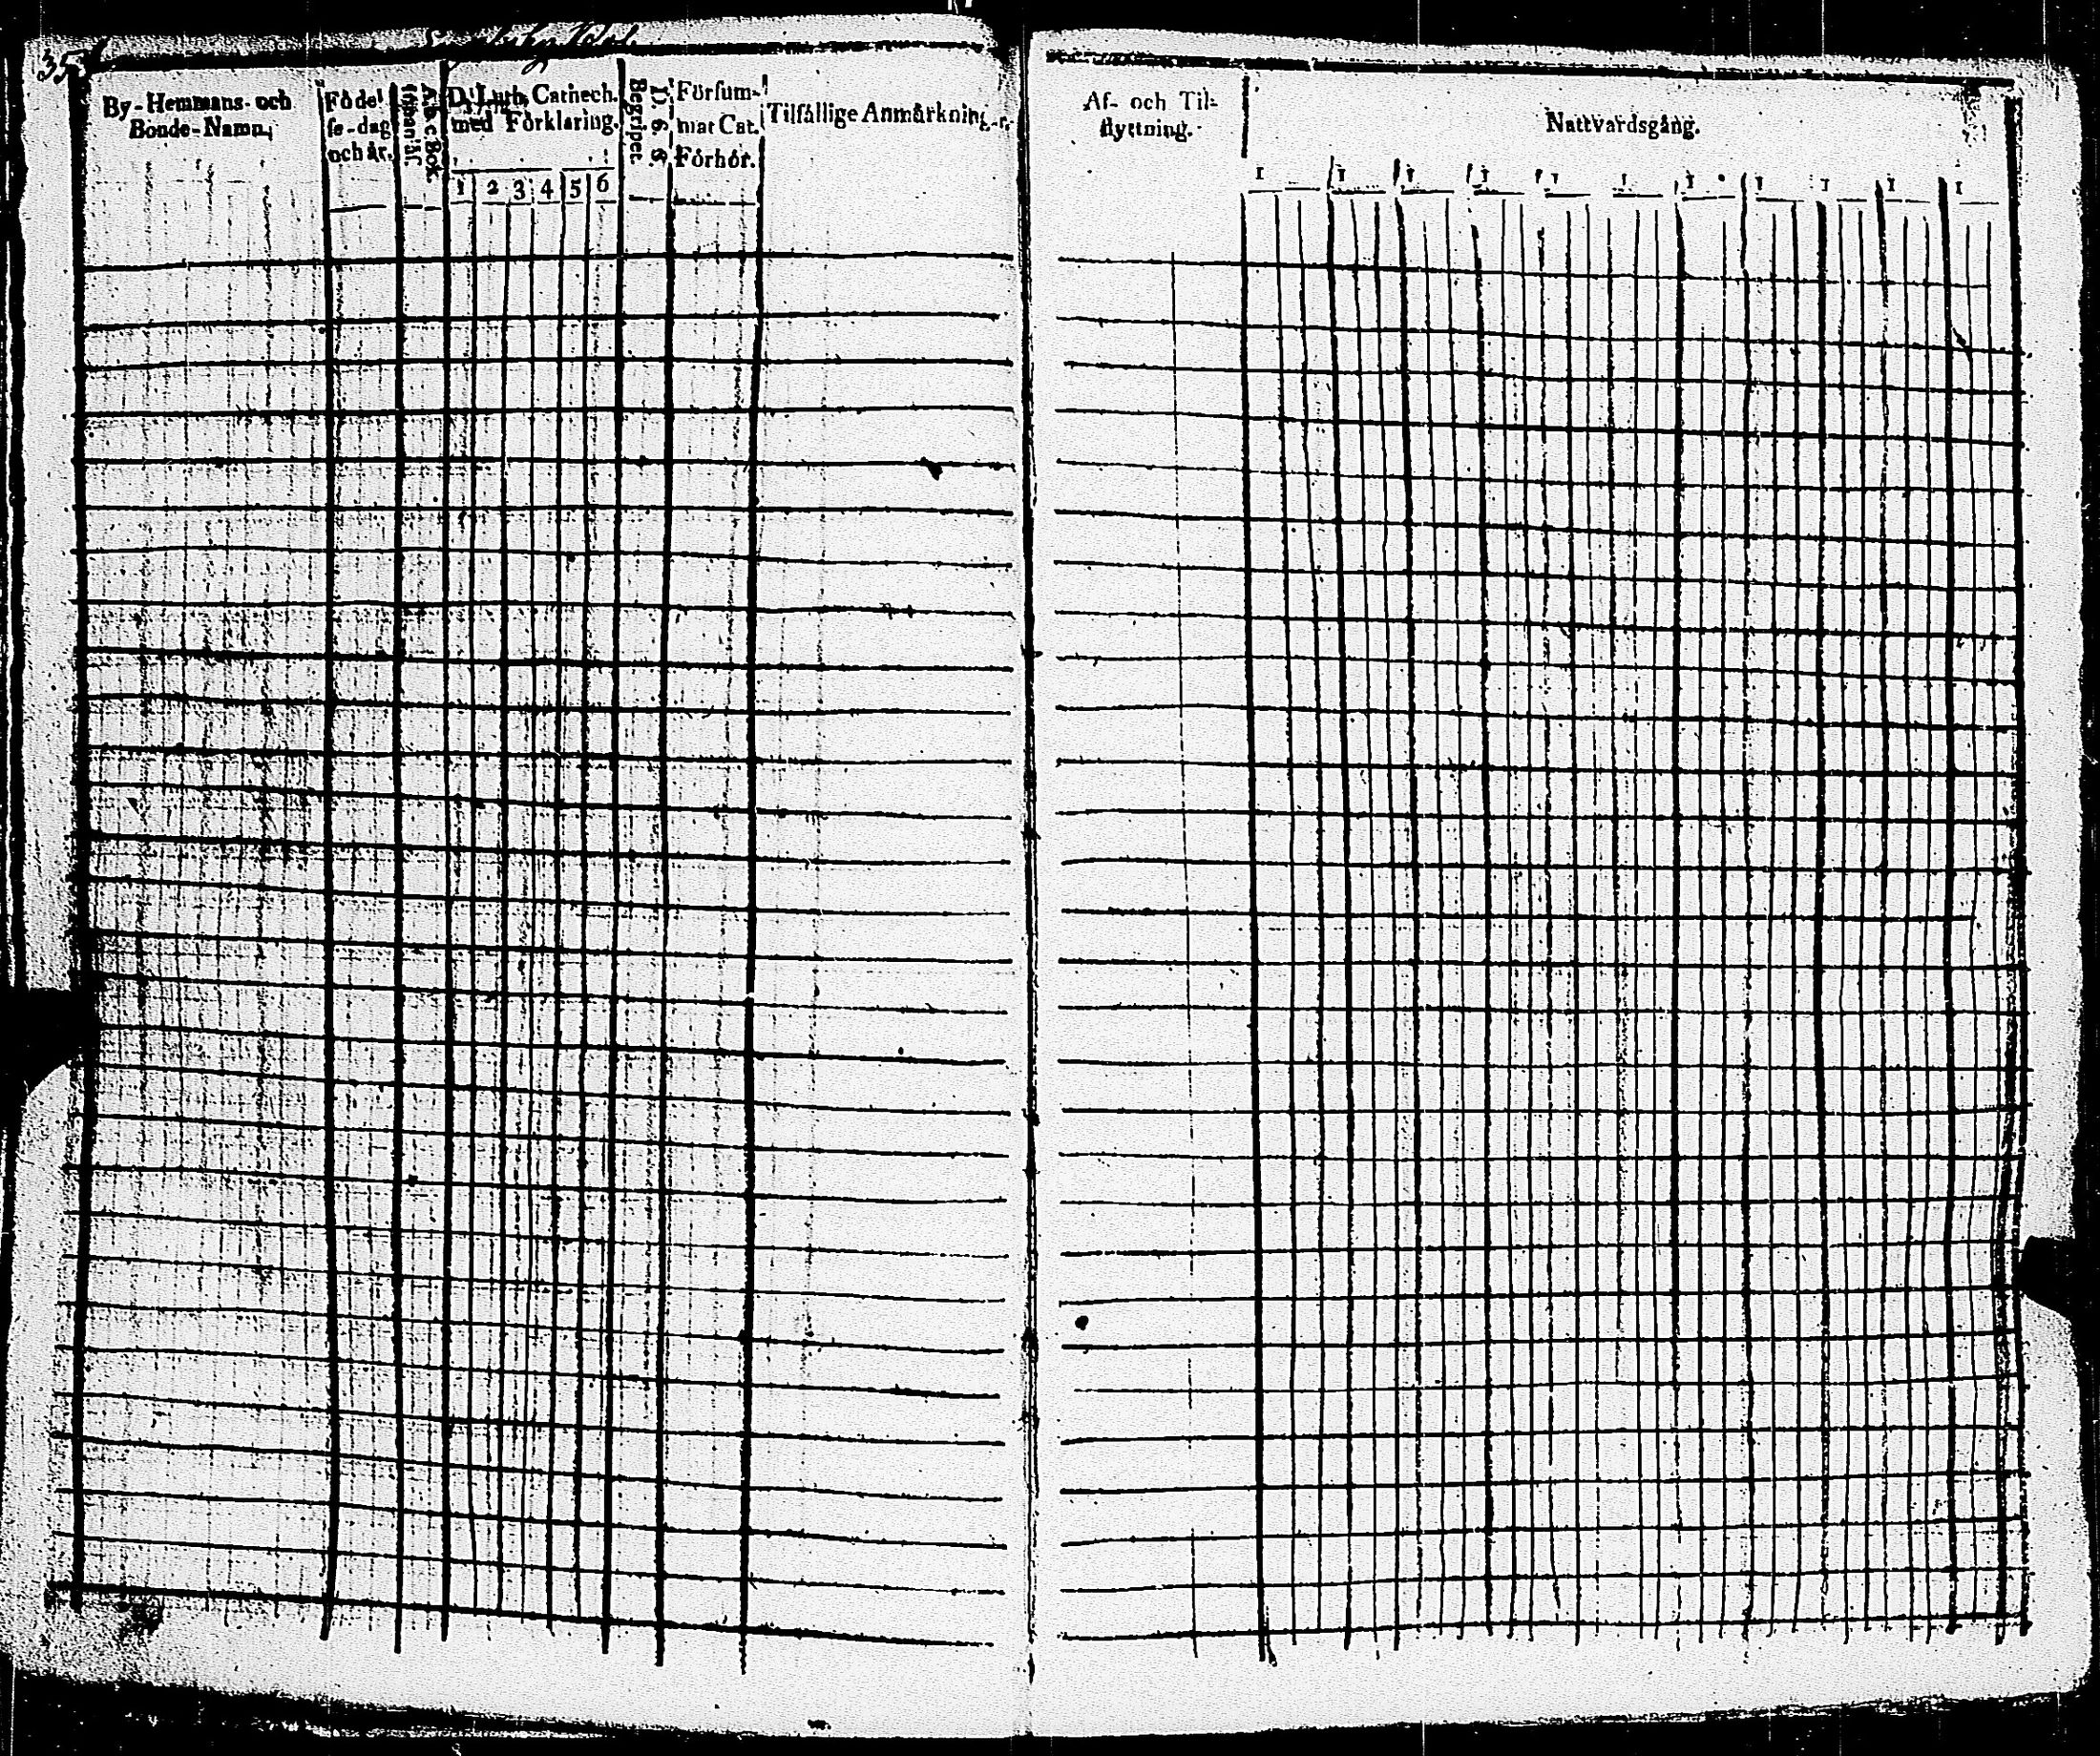 By-Hemmans- och
Bonde-Namn.
Födel
se-dag
och år.
A.b.c Bok.
Innanläs.
D. Luth. Cathech.
med Förklaring.
1 2 3 4 5 6
Begripet.
Försum-
mat Cat.
Förhör.
Tilfällige Anmärkning
Af- och Til-
flyttning.
Nattvardsgång.
1 1 1 1 1 1 1 1 1 1 1